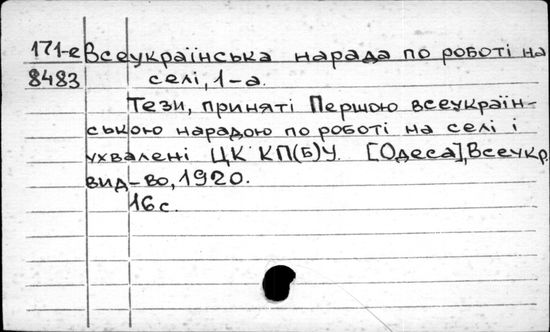 171-е Всеукраїнська нарада по роботі на
8483 селі, 1-а.
Тези, приняті Першою всеукраїн-
ською нарадою по роботі на селі і
ухвалені ЦК КП(б)У. [Одеса], Всеукр.
вид-во, 1920.
16 с.